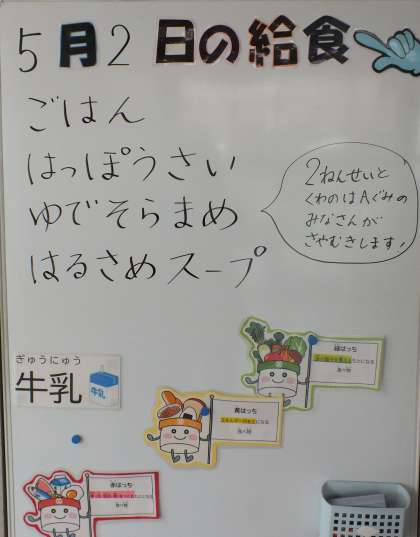 5月2日の給食
ごはん
はっぽうさい
ゆでそらまめ
はるさめスープ
2ねんせいと
くわのはAぐみの
みなさんが
さやむきします!
ぎゅうにゅう
牛乳
牛乳
緑はっち
食べ物
黄はっち
になる
食べ物
赤はっち
食べ物